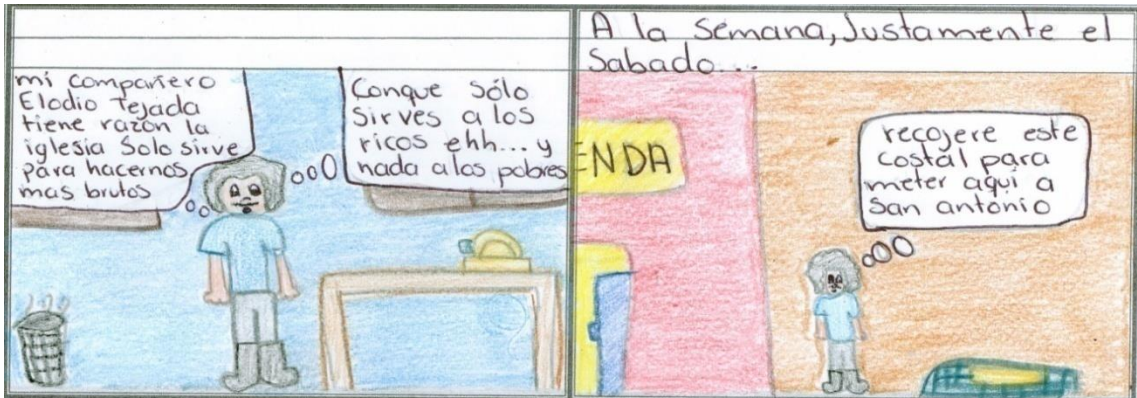 mi compañero
Elodio Tejada
tiene razón la
iglesia solo sirve
para hacernos
mas brutos
Conque sólo
sirves a los
ricos ehh... y
nada a los pobres
A la semana, Justamente el
Sabado...
ENDA
recojere este
costal para
meter aquì a
San antonio